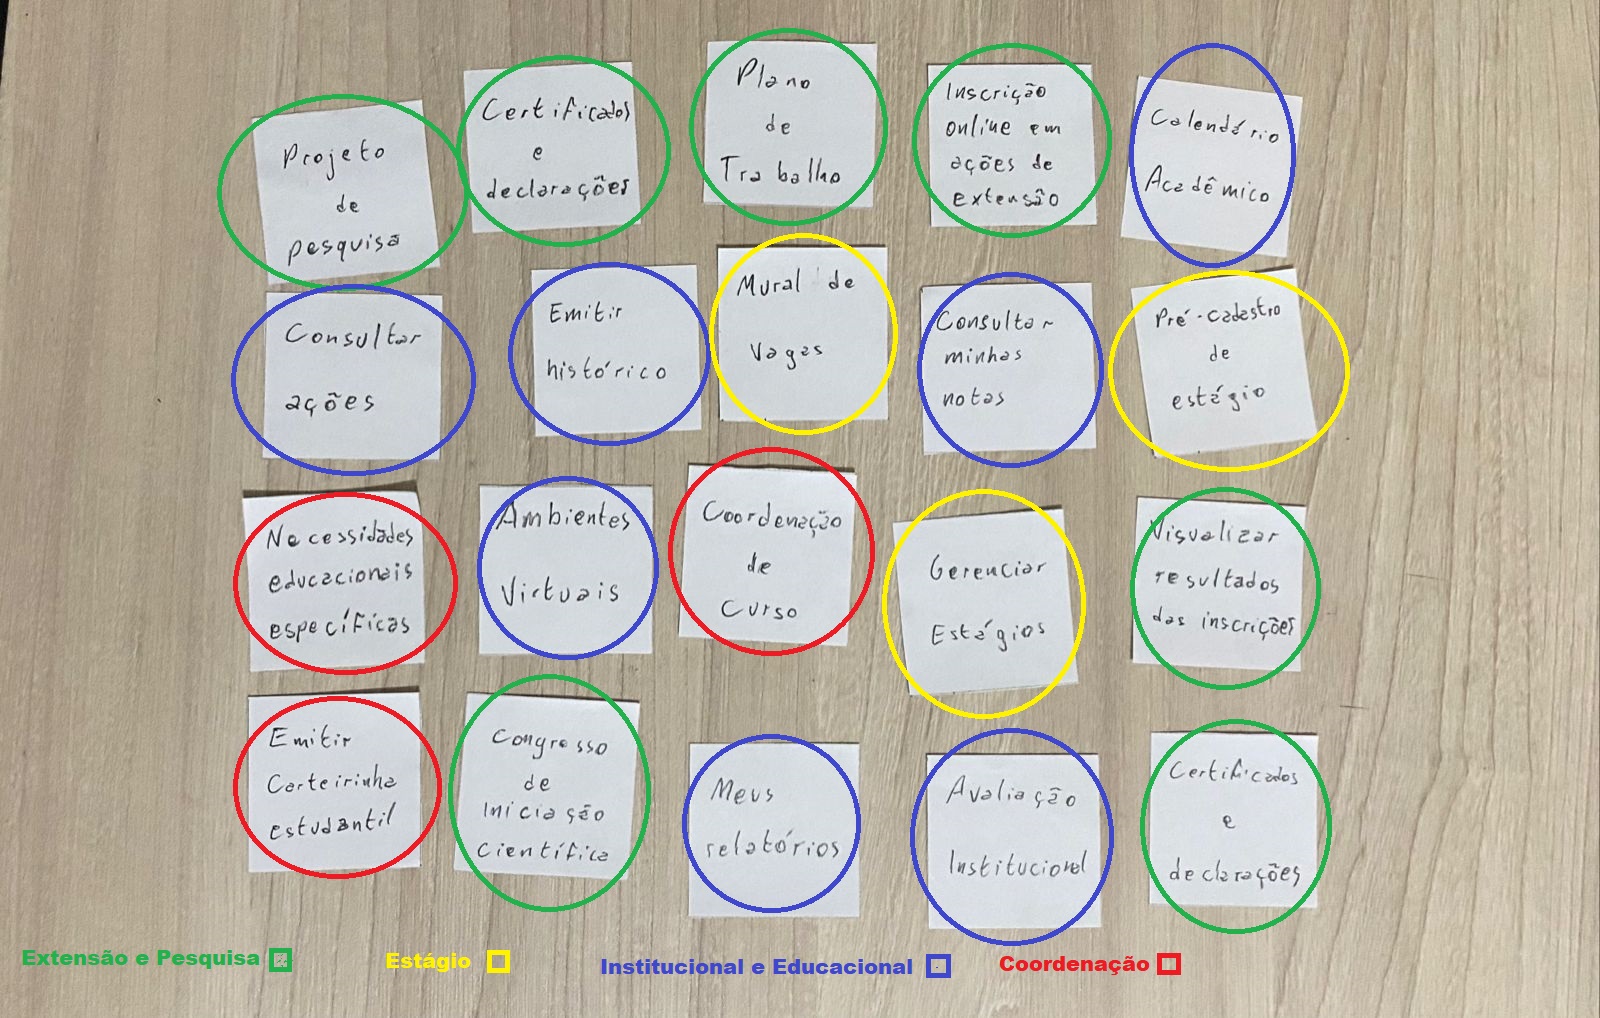 Projeto
de
pesquisa
Certificados
e
declarações
Plano
de
Trabalho
Inscrição
online em
ações de
extensão
Calendário
Acadêmico
Consultar
ações
Emitir
histórico
Mural de
Vagas
Consultar
minhas
notas
Pré-cadastro
de
estágio
Necessidades
educacionais
específicas
Ambientes
Virtuais
Coordenação
de
Curso
Gerenciar
Estágios
Visualizar
resultados
das inscrições
Emitir
Carteirinha
estudantil
Congresso
de
Iniciação
científica
Meus
relatórios
Avaliação
Institucional
Certificados
e
declarações
Extensão e Pesquisa
Estágio
Institucional e Educacional
Coordenação